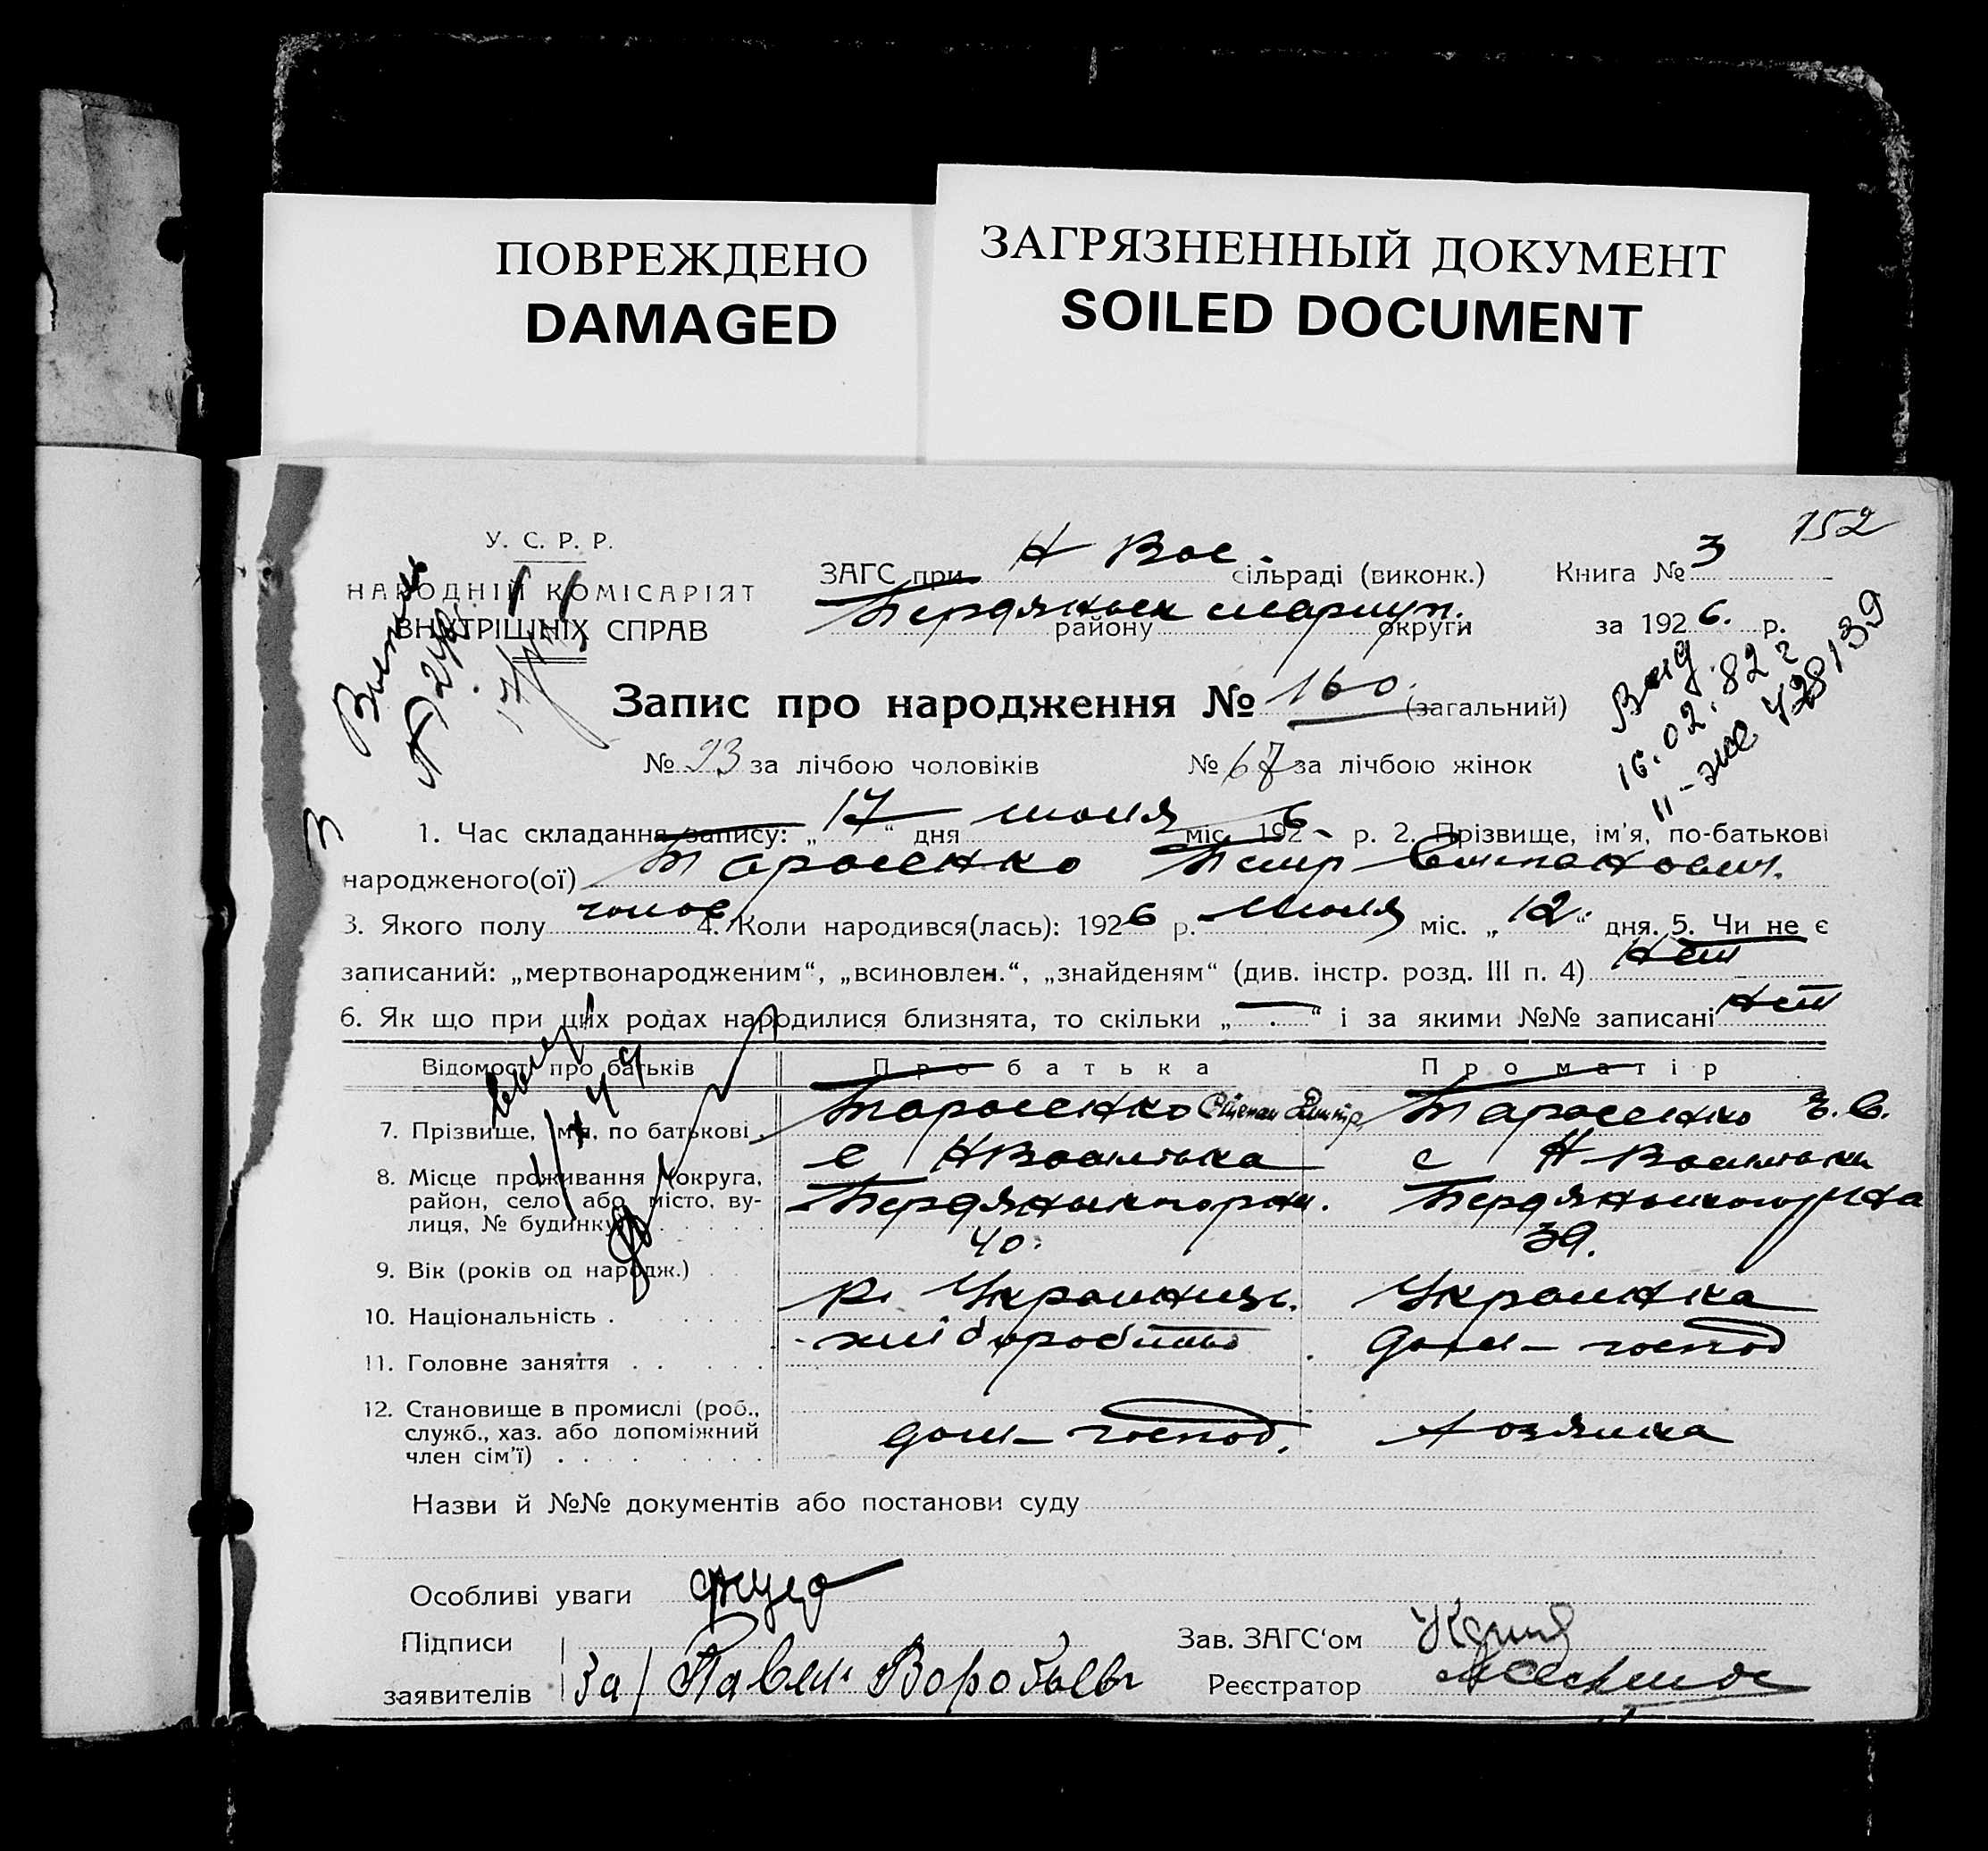 ПОВРЕЖДЕНО
DAMAGED
ЗАГРЯЗНЕННЫЙ ДОКУМЕНТ
SOILED DOCUMENT
152
У. С. Р. Р.
НАРОДНІЙ КОМІСАРІЯТ
ВНУТРІШНІХ СПРАВ
ЗАГС при Н Вас. сільраді (виконк.)
Бердянск мариуп. району округи
Книга № 3
за 1926. р.
Выд.
16.02.82 г
II-жс 428139
Запис про народження № 160. (загальний)
№ 93 за лічбою чоловіків № 67 за лічбою жінок
1. Час складання запису: „17“ дня июля міс. 1926 р. 2. Прізвище, ім'я, по-батькові
народженого(ої) Тарасенко Петр Степанович.
3. Якого полу чолов 4. Коли народився(лась): 1926 р. Июля міс. „12.“ дня. 5. Чи не є
записаний: „мертвонародженим“, „всиновлен.“, „знайденям“ (див. інстр. розд. III п. 4) Нет
6. Як що при ціїх родах народилися близнята, то скільки „-“ і за якими №№ записані Нет
Відомості про батьків Про батька Про матір
7. Прізвище, ім'я, по батькові. Тарасенко Степан Дмитр Тарасенко
8. Місце проживання (округа, район, село або місто, вулиця, № будинку) с НВасилька Бердянского рна. с Н Васильки Бердянского рна
9. Вік (років од народж.) 40. 39.
10. Національність . Украинць. Украинка
11. Головне заняття . . хлібороб дом-господ
12. Становище в промислі (роб., служб., хаз. або допоміжний член сім'ї) . . . дом-господ. хозяика
Назви й №№ документів або постанови суду
Особливі уваги
Підписи
заявителів За/ Павел Воробьевъ
Зав. ЗАГС‘ом
Реєстратор